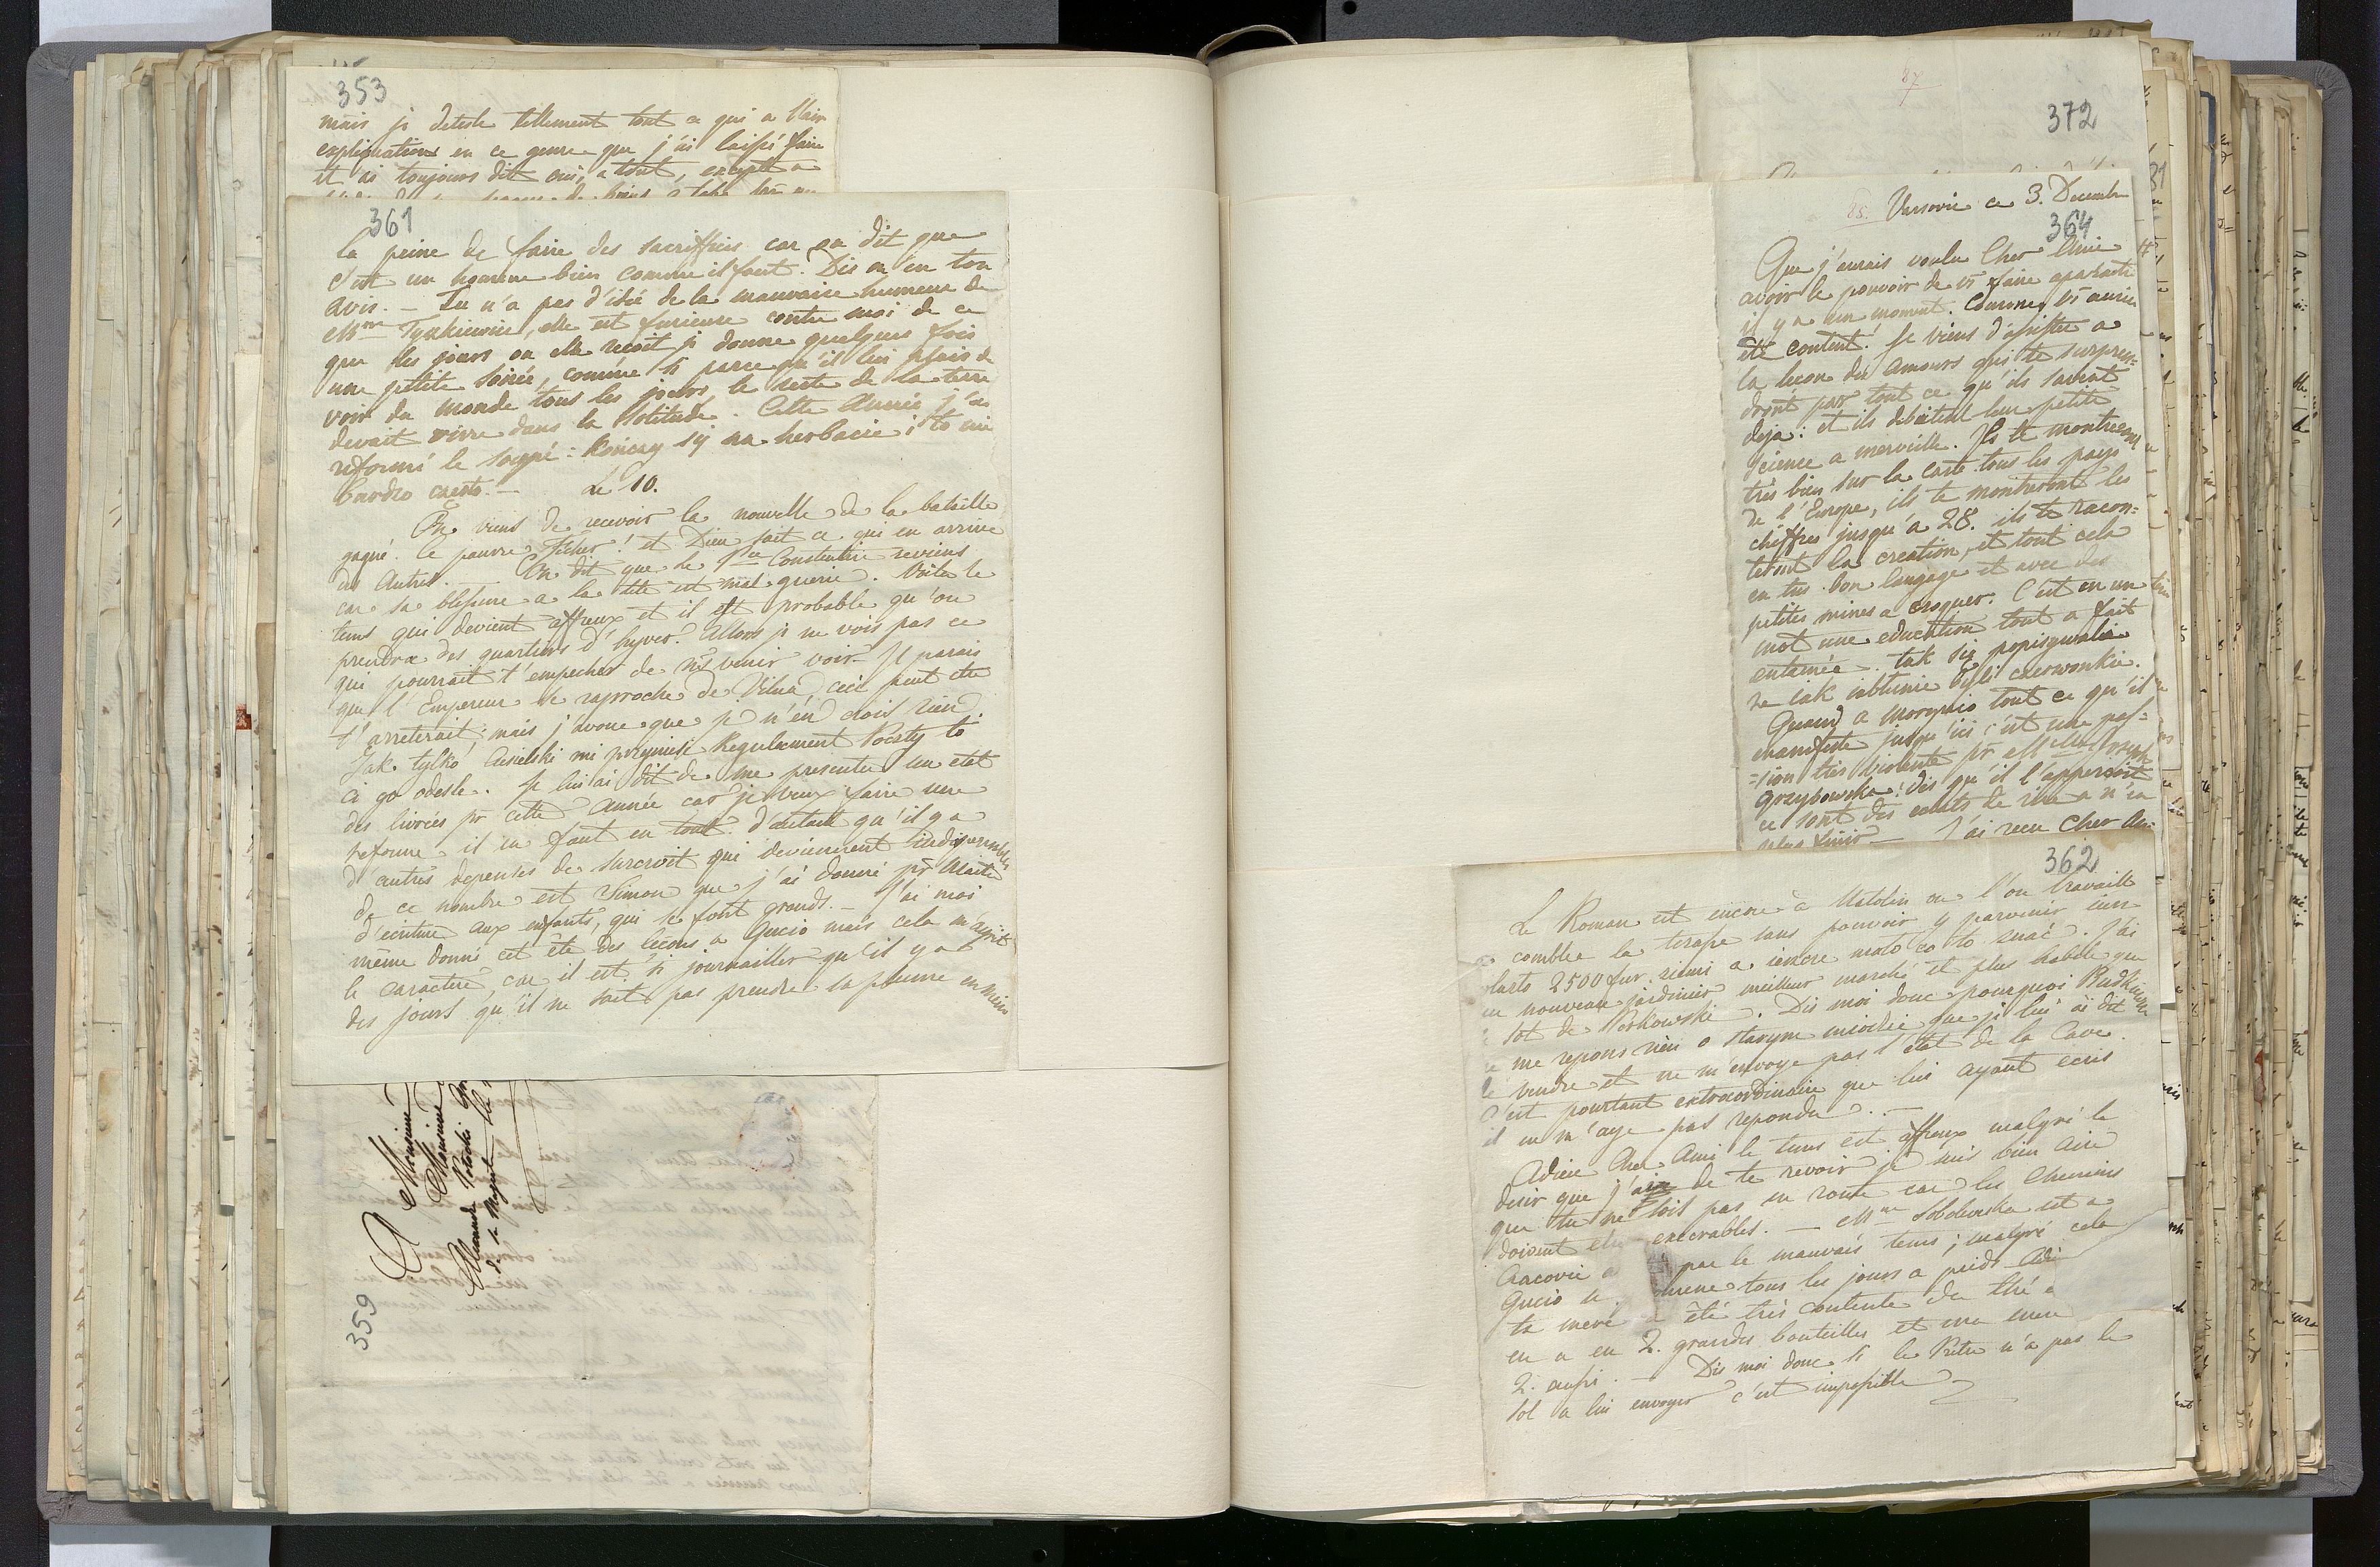 353
mais je deteste tellement tout ce qui a l'air
explications en ce genre que j'ai laissé faire
et ai toujours dit oui, a tout, excepté a
361
la peine de faire des sacriffices car on dit que
c'est un homme bien comme il faut. Dis en en ton
avis. — Tu n'a pas d'idée de la mauvaise humeur de
Mme Tyszkiewicz, elle est furieuse contre moi de ce
que les jours ou elle recoit je donne quelques fois
une petite soirée, comme si parce qu'il lui plais de
voir du monde tous les jours, le reste de la terre
devait vivre dans la solitude. Cette Année j'ai
reformé le soupé: kończy się na herbacie i to mi
bardzo
Le 10.
On viens de recevoir la nouvelle de la bataille
gagné. Ce pauvre Ficher! et Dieu sait ce qui en arrive
des Autres. — On dit que le Pce Constantin reviens
car sa blessure a la tete est mal guerie. Voila le
tems qui devient affreux et il est probable qu'on
prendra des quartiers d'hyver. Allors je ne vois pas ce
qui pourrait t'empecher de ns venir voir. Il parais
que l'Empereur se raproche de Vilna, ceci peut etre
t'arreterait; mais j'avoue que je n'en crois rien.
Jak tylko Ciesielski mi przyniesie Regulament Poczty to
Ci go odeslę. Je lui ai dit de me presenter un etat
des livrées pr cette Année car je veux faire une
reforme il en faut en tout. d'autant qu'il y a
d'autres depenses de surcroit qui deviennent indispensables
de ce nombre est Simon que j'ai donné pr Maitre
d'ecriture aux enfants, qui se font grands. — J'ai moi
même donné cet été des leçons a Gucio mais cela m'aigrit
le caractère, car il est si journailler qu'il y a
des jours qu'il ne sait pas prendre sa plume en main
A Monsieur
Monsieur
Alexandre Potocki
de sa Majesté
359
87
372
85. Varsovie ce 3. Decembre
364
Que j'aurais voulu Cher Ami
avoir le pouvoir de vs faire aparaitre
il y a un moment. Comme vs auriez
été content. Je viens d'assister a
la lecon des Amours qui te surpren-
dront par tout ce qu'ils savent
deja: et ils debitent leur petite
science a merveille. Ils te montreront
très bien sur la carte tous les pays
de l'Europe, ils te montreront les
chiffres jusqu'a 28. ils te racon-
teront la creation, et tout cela
en très bon langage et avec des
petites mines a croquer. C'est en un
mot une education tout a fait
entamée. tak się popisywalia
ze iak iabłunie byli czerwonkie.
Quand a Moryşio tout ce qu'il
manifeste jusqu'ici c'est une pas-
sion très violente pr Melle Joseph
Grzybowska: dès qu'il l'appercoit
ce sont des eclats de rire a n'en
plus finir — J'ai recu Cher Ami
362
Le Roman est encore à Natolin ou l'on travaille
a combler la terasse sans pouvoir y parvenir
2500 fur. ziemi a ieszcze mało co to znać. J'ai
un nouveau jardinier meilleur marché et plus habile que
sot de Borkowski. Dis moi donc pourquoi
ne me repons rien o starym miodzie que je lui ai dit
de vendre et ne m'envoye pas l'état de la Cave.
C'est pourtant extraordinaire que lui ayant ecris
il ne m'aye pas repondu. —
Adieu Cher Ami le tems est affreux malgré le
desir que j'ai de te revoir je suis bien aise
que tu ne sois pas en route car les chemins
doivent etre execrables. — Mme Sobolewska est a
Cracovie par le mauvais tems; malgré cela
Gucio se promene tous les jours a pieds
ta mere a été très contente du thé
en a eu 2. grandes bouteilles et ma mere
2. aussi. — Dis moi donc si le Pretre n'a pas le
sol a lui envoyer c'est impossible